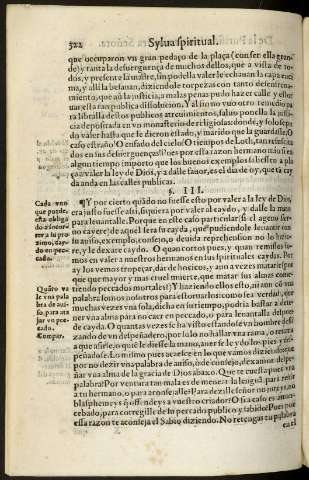 322 Sylua spiritual.
que occuparon vn gran pedaço de la plaça (con ser ella gran-
de) y tanta la desuerguença de muchos dellos, que a vista de to-
dos, y presente la madre, sin podella valer le echauan la capa enci
ma, y alli la besauan, diziendole torpezas con tanto desenfrena
miento, que aũ la justicia, a malas penas pudo hazer calle y estor
uar esta tan publica dissolucion. Y al fin no vuo otro remedio pa
ra librarla destos publicos atreuimientos, saluo ponella la justi
cia depositada en vn monasterio de religiosas: donde, y solo se pu
do valer hasta que le dieron estado, y marido que la guardasse. O
caso estraño! O enfado del cielo! O tiempos de Loth, no
dos en sus desuerguenças! pues por esta razon hermano
algun tiempo importe que los buenos exemplos
ra valer la ley de Dios, y a dalle fauor, es el dia de oy, que ta cay
da anda en las calles publicas.
§. III.
Cada vno
que puede,
esta obliga
do a socor-
rer a su pro
ximo, cay-
do en pec-
cado.
¶Y por cierto quãdo no fuesse esto por valer a la ley de Dios,
era justo fuesse assi, siquiera por valer al caydo, y dalle la mano
para leuantalle. Porque en este caso particular, si el ageno ser-
uicio de aquel sera su cayda, que pudiendole leuantar con
su auiso, exemplo, consejo, o deuida reprehension no lo hizie-
re, y le dexare caydo. O quan cortos pues, y quan remissos so-
mos en valer a nuestros hermanos en sus spirituales caydas. Por
ay los vemos tropeçar, dar de hozicos, y aun a vezes matarse: por
que que mayor y mas cruel muerte, que matar sus almas come-
Quãto va
le vna pala
bra de aui-
so, para ata
jar vn pec-
cado.
Compar.
tiendo peccados mortales? Y haziendo ellos esto, ni aun cõ vna
palabra somos nosotros para estoruarlos: como sea verdad, que
muchas vezes vna sola, dicha en su tiempo, podria bastar a dete-
ner vna alma para no caer en peccado, o para leuantalla despues
de cayda. O quantas vezes se ha visto estando vn hombre desli-
zando de vn despeñadero, por solo no hallar vna rama, o retama
a que asirse, o quiẽ le diesse la mano, auersele ydo los pies y des-
peñadose. Lo mismo pues acaesce en lo que vamos diziendo: que
por no dezir vna palabra de auiso, o de consejo, dexamos despe-
ñar vna alma de la gracia de Dios abaxo. Que te cuesta pues vna
palabra? Por ventura tan mal es de menear la lengua para retirar
a tu hermano, o para aconsejalle? Para dezille señor no
blasphemeys q̃ offendeys a vuestro criador? O si a caso es aman-
cebado, para corregille de su peccado publico y sabido? Pues por
essa razon te aconseja el Sabio diziendo. No retengas tu palabra
en el